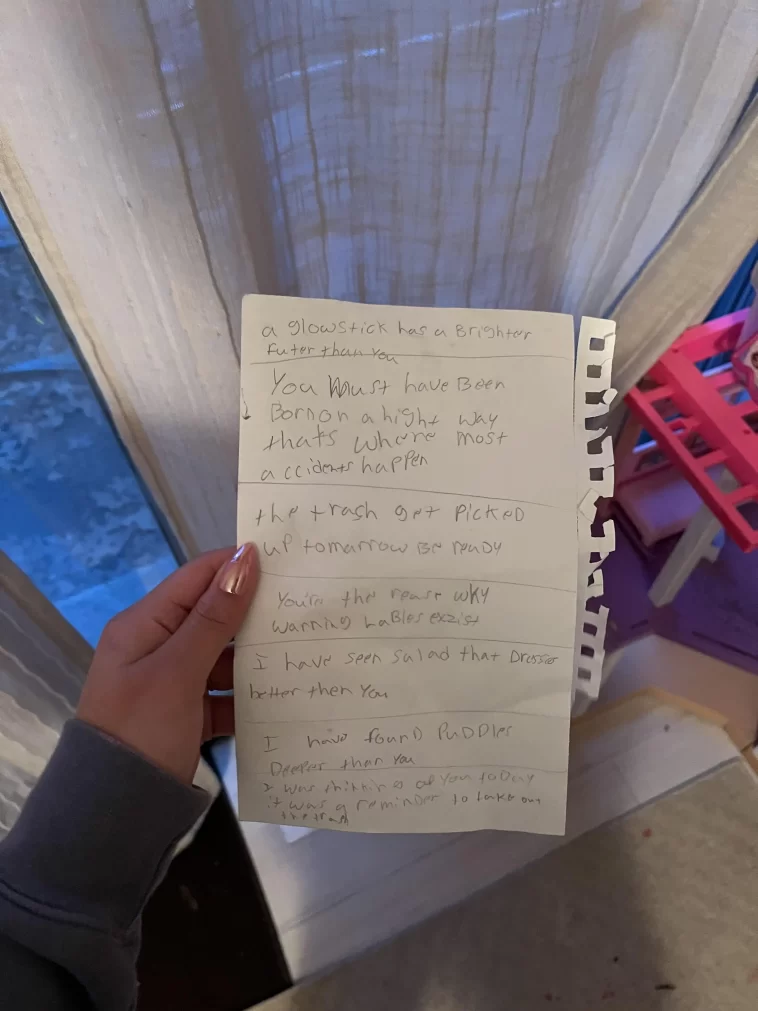 a glowstick has a Brighter
Futer than You
You Must have Been
Born on a hight way
that's where most
accidents happen
the trash get Picked
up tomorrow Be ready
You're the reasr why
warning LaBles exzist
I have seen salad that Dresses
better then You
I have found PuDDles
Deeper than You
I was thinking of You toDay
it was a reminDer to take out
the trash